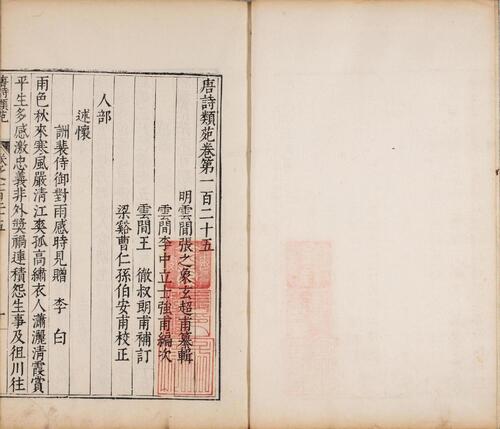 唐詩類苑卷第一百二十五
明雲間張之象玄超甫纂輯
雲間李中立士強甫編次
雲間王徹叔朗甫補訂
梁谿曹仁孫伯安甫校正
人部
述懷
訓裴侍御對雨感時見贈 李白
雨色秋來寒風嚴清江爽孤高繡衣人瀟灑清霞賞
平生多感激忠義非外奬禍連積怨生事及徂川往
唐詩類苑